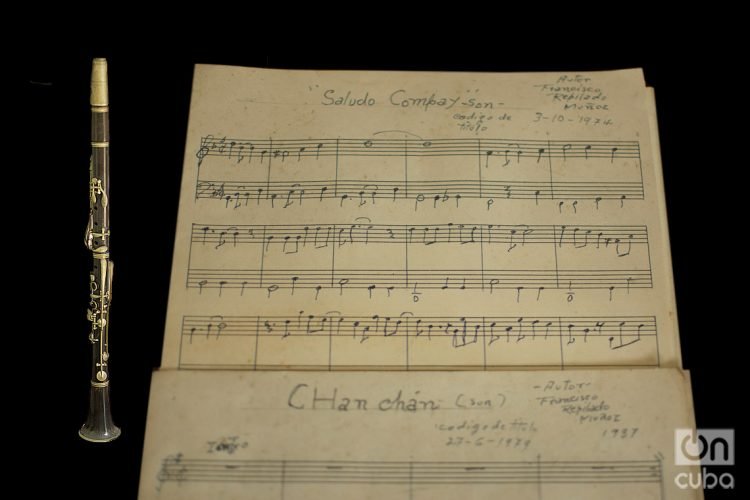 "Saludo Compay" -son-
Autor
Francisco
Repilado
Muñoz
codigo de
titulo
3-10-1974
CHan chán (son)
-Autor-
Francisco
Repilado
Muñoz
1937
codigo de titulo
27-6-1979
On
cuba